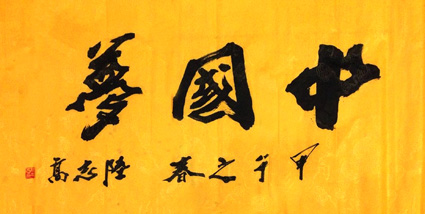 中國夢
甲午之春 陸志高